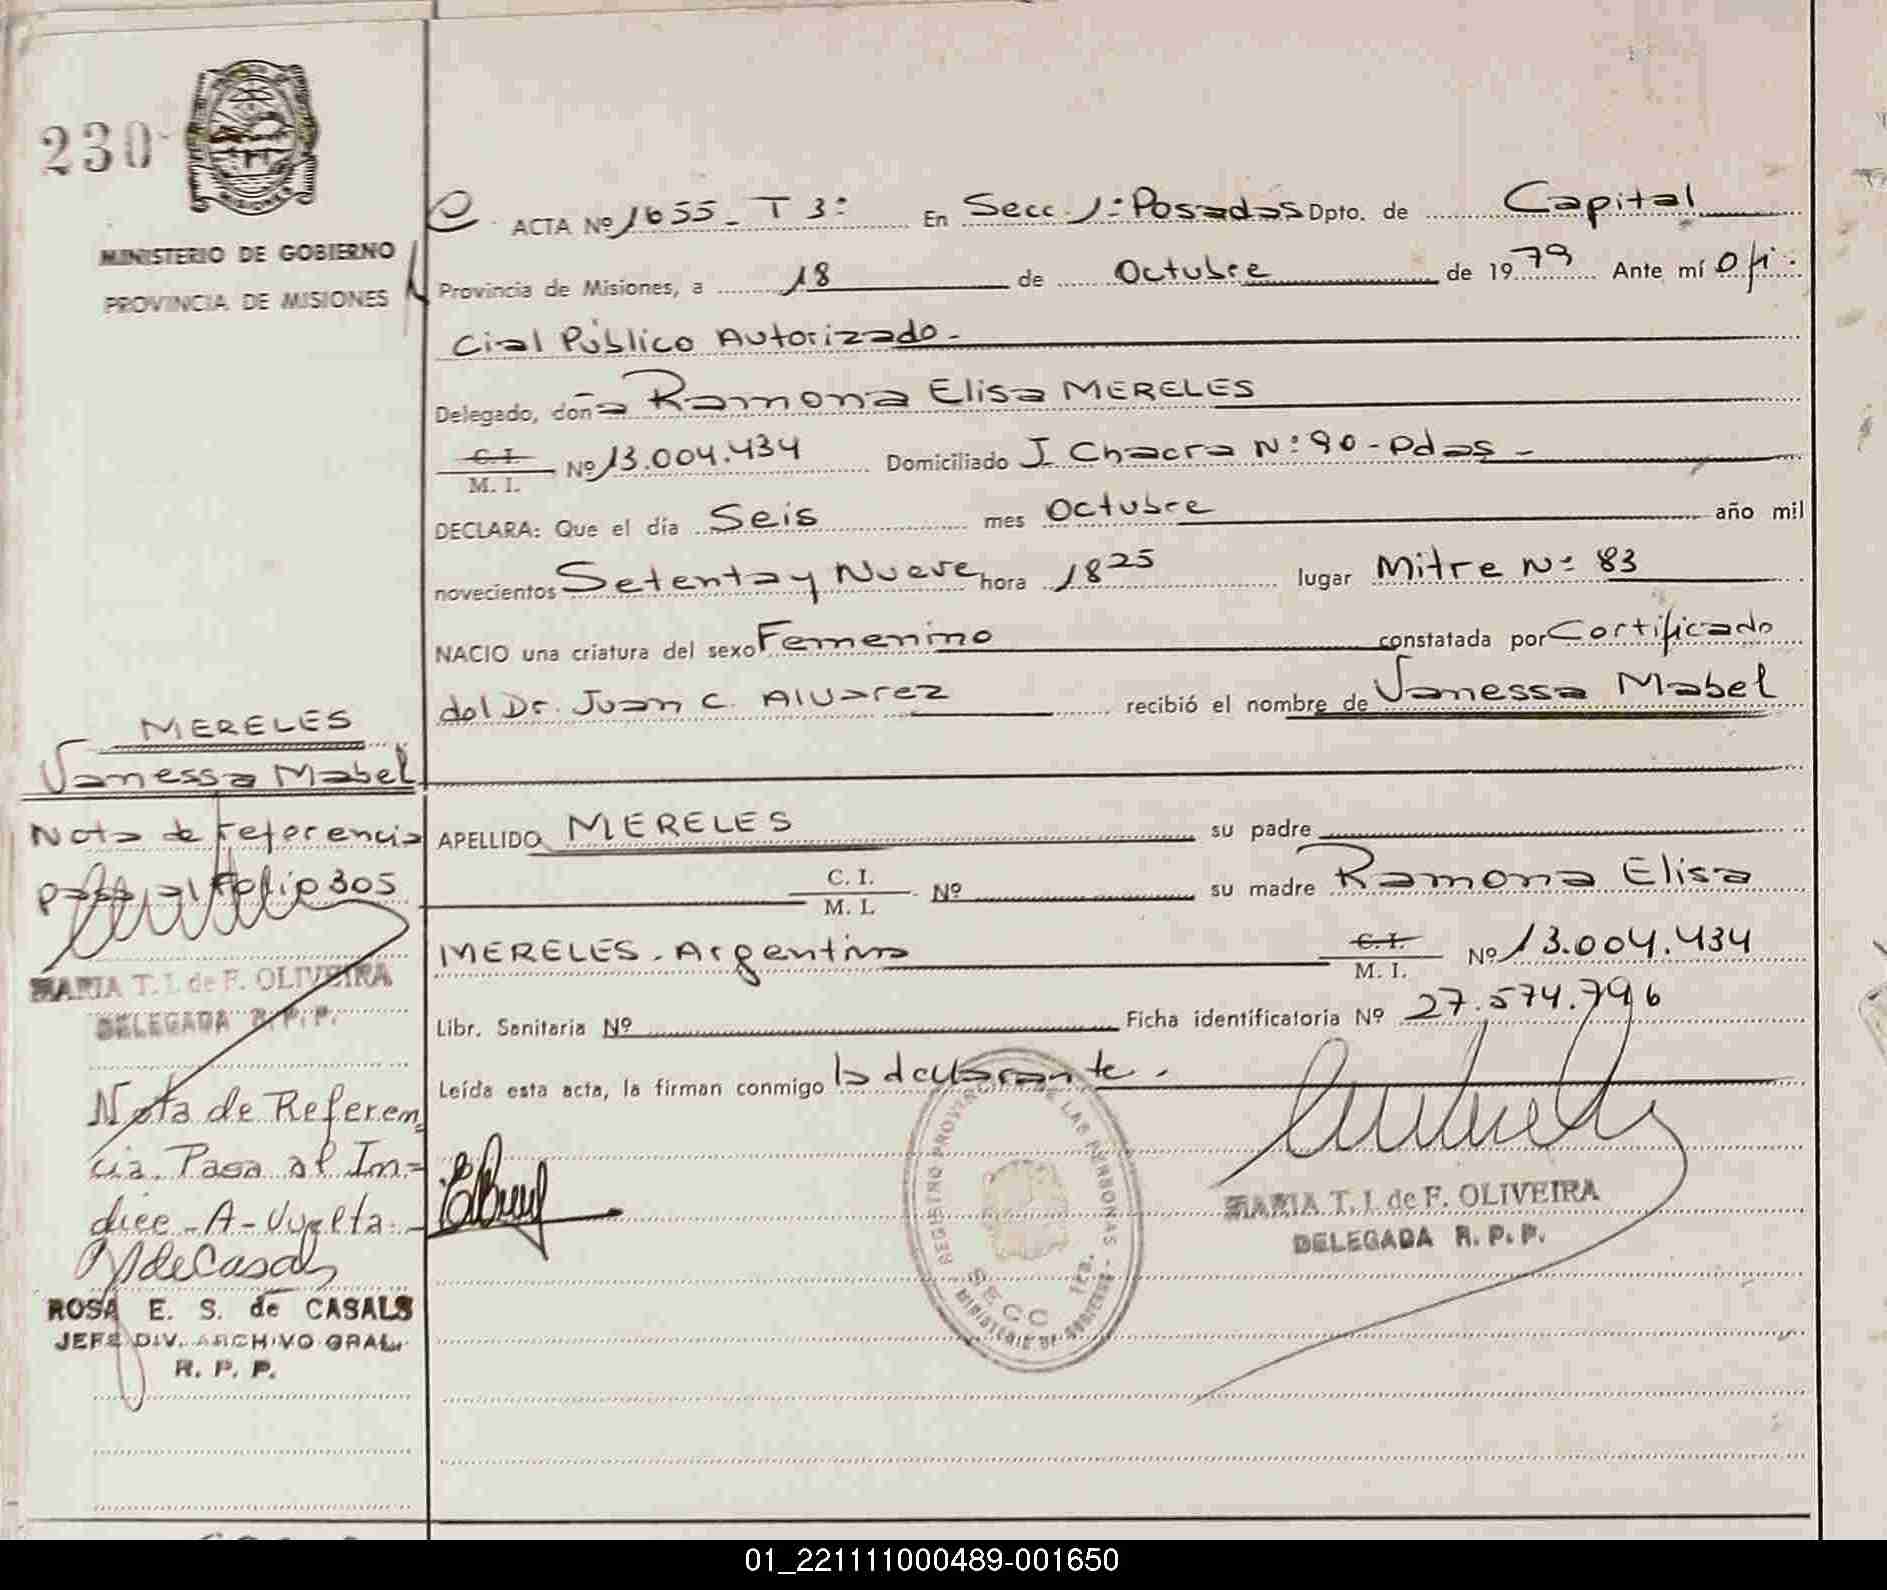 230
MISIONES
MINISTERIO DE GOBIERNO
PROVINCIA DE MISIONES
ACTA Nº 1655 - T 3º En Secc. 1º Posadas Dpto. de Capital
Provincia de Misiones, a 18 de Octubre de 1979 Ante mí Ofi-
cial Público Autorizado.-
Delegado, doña Ramona Elisa MERELES
C. I.
M. I. Nº 13.004.434 Domiciliado J Chacra Nº 90 - Pdas -
DECLARA: Que el día Seis mes Octubre año mil
novecientos Setenta y Nueve hora 18 25 lugar Mitre Nº 83
NACIO una criatura del sexo Femenino constatada por Certificado
del Dr. Juan C. Alvarez recibió el nombre de Vanessa Mabel
APELLIDO MERELES su padre
C. I.
M. I. Nº su madre Ramona Elisa
MERELES. Argentina C. I.
M. I. Nº 13.004.434
Libr. Sanitaria Nº Ficha identificatoria Nº 27.574.796
Leída esta acta, la firman conmigo la declarante.
REGISTRO PROVINCIAL DE LAS PERSONAS
SECC 1ra.
MINISTERIO DE GOBIERNO
MARIA T. I. de F. OLIVEIRA
DELEGADA R. P. P.
MERELES
Vanessa Mabel
Nota de referencia
pasa al Folio 305
MARIA T. I. de F. OLIVEIRA
DELEGADA R. P. P.
Nota de Referen
cia. Pasa al In=
dice - A - Vuelta. -
ROSA E. S. de CASALS
JEFE DIV. ARCHIVO GRAL.
R. P. P.
01_221111000489-001650